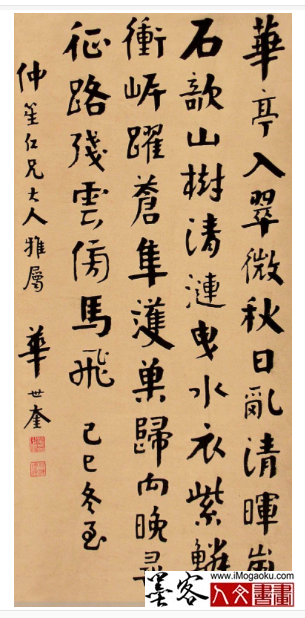 華亭入翠微秋日亂清暉崩
石欹山樹清漣曳水衣紫鱗
衝岸躍蒼隼護巢歸向晚尋
征路殘雲傍馬飛 己巳冬至
仲笙仁兄大人雅屬 華世奎
www.iMogaoku.com
墨客 人文書畫